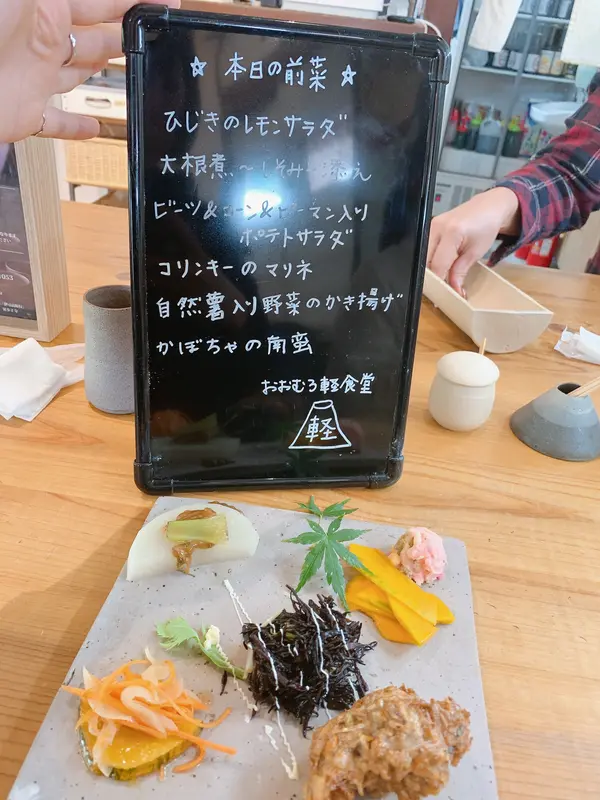 ☆ 本日の前菜 ☆
ひじきのレモンサラダ
大根煮〜しそみ〜添え
ビーツ&コーン&ピーマン入り
ポテトサラダ
コリンキーのマリネ
自然薯入り野菜のかき揚げ
かぼちゃの南蛮
おおむろ軽食堂
軽